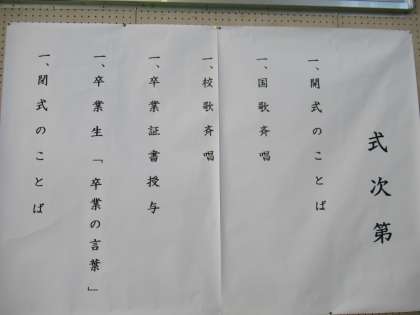 式次第
一、開式のことば
一、国歌斉唱
一、校歌斉唱
一、卒業証書授与
一、卒業生「卒業の言葉」
一、閉式のことば